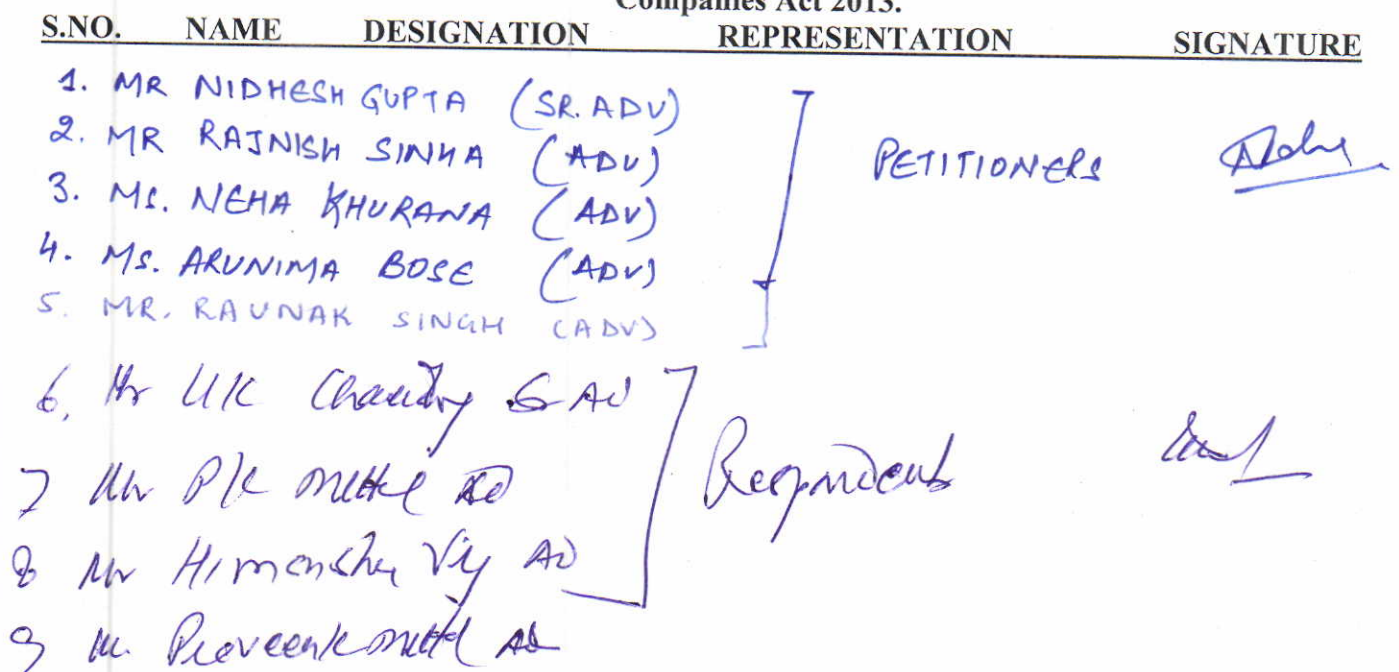 Companies Act 2013.
S.NO. NAME DESIGNATION REPRESENTATION SIGNATURE
1. MR NIDHESH GUPTA (SR. ADV)
2. MR RAJNISH SINHA (ADV) PETITIONERS
3. MS. NEHA KHURANA (ADV)
4. MS. ARUNIMA BOSE (ADV)
5. MR. RAUNAK SINGH (ADV)
6. Mr UK Chaudhry Sr Adv
7 Mr P/K Mittal Adv Respondents
8 Mr Himanshu Vij Adv
9 Mr. Praveen K Mittal Adv